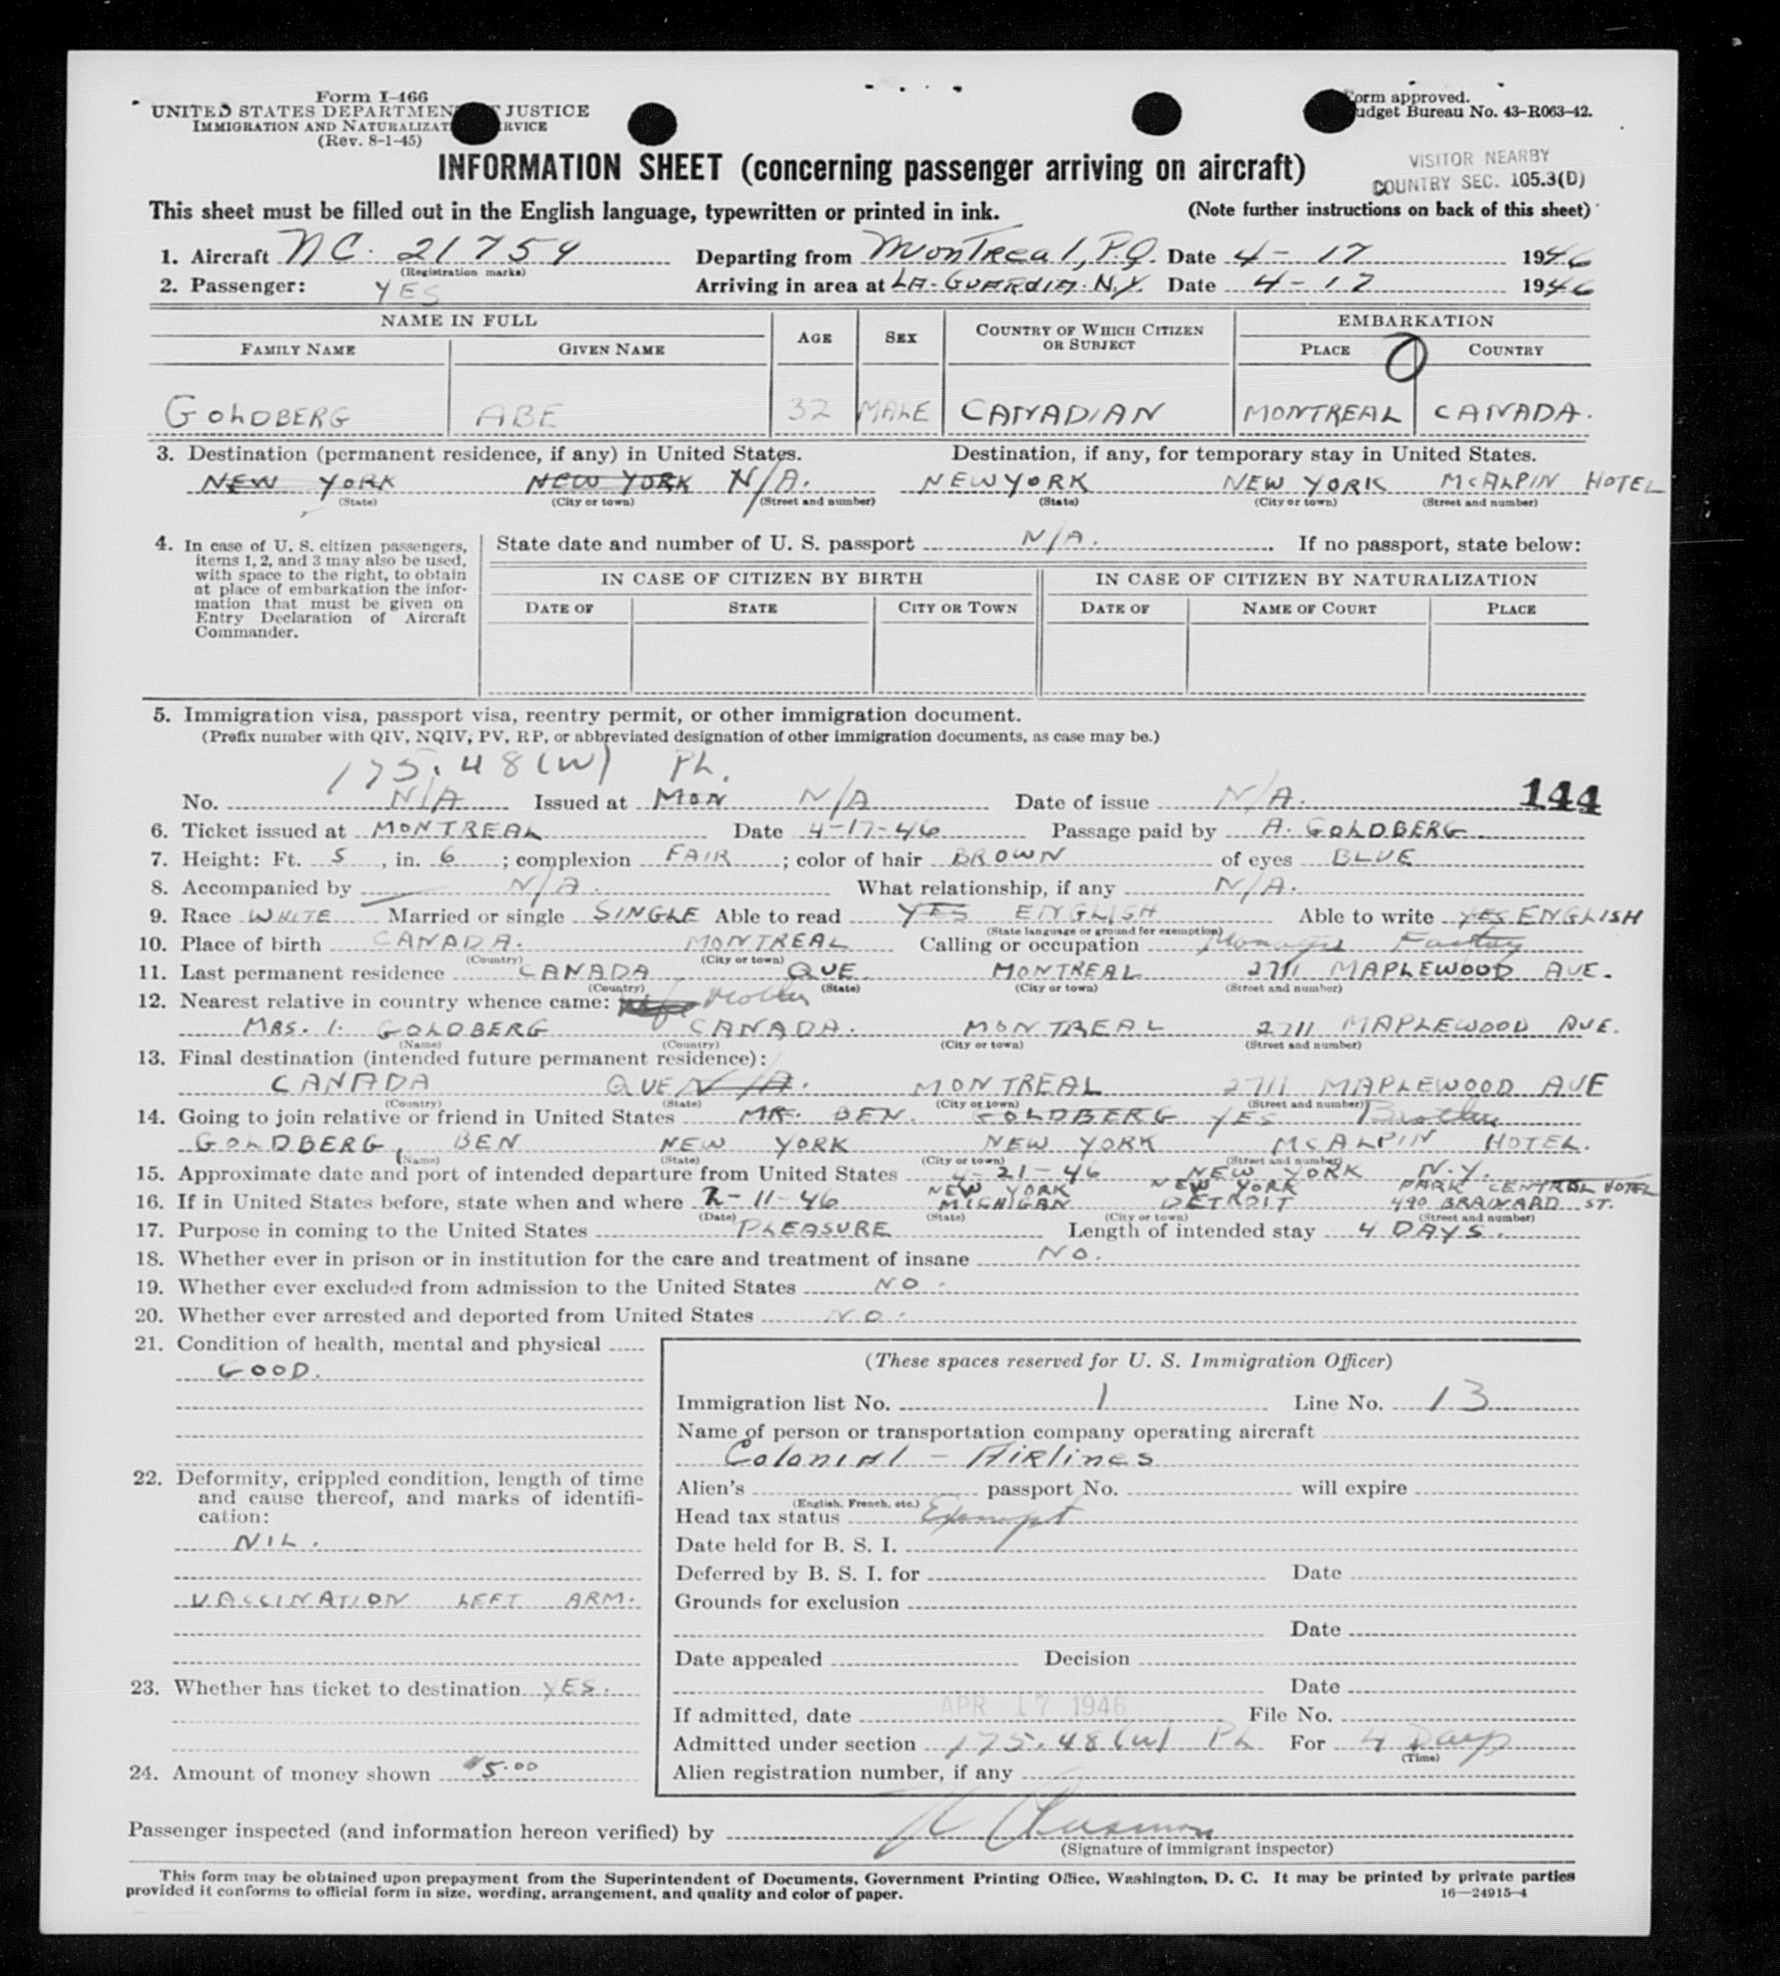 Form I-466
UNITED STATES DEPARTMENT JUSTICE
IMMIGRATION AND NATURALIZAT RVICE
(Rev. 8-1-45)
Form approved.
Budget Bureau No. 43-R063-42.
INFORMATION SHEET (concerning passenger arriving on aircraft)
VISITOR NEARBY
COUNTRY SEC. 105.3(D)
This sheet must be filled out in the English language, typewritten or printed in ink. (Note further instructions on back of this sheet)
1. Aircraft NC. 21759 Departing from Montreal, P.Q. Date 4-17 1946
(Registration marks)
2. Passenger: YES Arriving in area at LA-GUARDIA. N.Y. Date 4-17 1946
NAME IN FULL AGE SEX COUNTRY OF WHICH CITIZEN OR SUBJECT EMBARKATION
FAMILY NAME GIVEN NAME PLACE COUNTRY
GOLDBERG ABE 32 MALE CANADIAN MONTREAL CANADA.
3. Destination (permanent residence, if any) in United States. Destination, if any, for temporary stay in United States.
NEW YORK NEW YORK N/A. NEW YORK NEW YORK McALPIN HOTEL
(State) (City or town) (Street and number) (State) (City or town) (Street and number)
4. In case of U. S. citizen passengers, items 1, 2, and 3 may also be used, with space to the right, to obtain at place of embarkation the information that must be given on Entry Declaration of Aircraft Commander.
State date and number of U. S. passport N/A. If no passport, state below:
IN CASE OF CITIZEN BY BIRTH IN CASE OF CITIZEN BY NATURALIZATION
DATE OF STATE CITY OR TOWN DATE OF NAME OF COURT PLACE
5. Immigration visa, passport visa, reentry permit, or other immigration document.
(Prefix number with QIV, NQIV, PV, RP, or abbreviated designation of other immigration documents, as case may be.)
175.48(W) Ph.
No. N/A Issued at MON N/A Date of issue N/A. 144
6. Ticket issued at MONTREAL Date 4-17-46 Passage paid by A. GOLDBERG.
7. Height: Ft. 5, in. 6; complexion FAIR; color of hair BROWN of eyes BLUE
8. Accompanied by N/A. What relationship, if any N/A.
9. Race WHITE Married or single SINGLE Able to read YES ENGLISH Able to write YES ENGLISH
(State language or ground for exemption)
10. Place of birth CANADA. MONTREAL Calling or occupation Manager Factory
(Country) (City or town)
11. Last permanent residence CANADA QUE. MONTREAL 2711 MAPLEWOOD AVE.
(Country) (State) (City or town) (Street and number)
12. Nearest relative in country whence came: Mother
MRS. I. GOLDBERG CANADA. MONTREAL 2711 MAPLEWOOD AVE.
(Name) (Country) (City or town) (Street and number)
13. Final destination (intended future permanent residence):
CANADA QUE N/A. MONTREAL 2711 MAPLEWOOD AVE
(Country) (State) (City or town) (Street and number)
14. Going to join relative or friend in United States MR. BEN. GOLDBERG YES Brother
GOLDBERG, BEN NEW YORK NEW YORK McALPIN HOTEL.
(Name) (State) (City or town) (Street and number)
15. Approximate date and port of intended departure from United States 4-21-46 NEW YORK N.Y.
NEW YORK NEW YORK PARK CENTRAL HOTEL
16. If in United States before, state when and where 2-11-46 MICHIGAN DETROIT 490 BRAINARD ST.
(Date) (State) (City or town) (Street and number)
17. Purpose in coming to the United States PLEASURE Length of intended stay 4 DAYS.
18. Whether ever in prison or in institution for the care and treatment of insane NO.
19. Whether ever excluded from admission to the United States NO.
20. Whether ever arrested and deported from United States NO.
21. Condition of health, mental and physical
GOOD.
22. Deformity, crippled condition, length of time and cause thereof, and marks of identification:
NIL.
VACCINATION LEFT ARM.
23. Whether has ticket to destination YES.
24. Amount of money shown $5.00
(These spaces reserved for U. S. Immigration Officer)
Immigration list No. 1 Line No. 13
Name of person or transportation company operating aircraft
Colonial - Airlines
Alien's passport No. will expire
(English, French, etc.)
Head tax status Exempt
Date held for B. S. I.
Deferred by B. S. I. for Date
Grounds for exclusion
Date
Date appealed Decision
Date
If admitted, date APR 17 1946 File No.
Admitted under section 175.48(W) Ph For 4 Days
(Time)
Alien registration number, if any
Passenger inspected (and information hereon verified) by
(Signature of immigrant inspector)
This form may be obtained upon prepayment from the Superintendent of Documents, Government Printing Office, Washington, D. C. It may be printed by private parties
provided it conforms to official form in size, wording, arrangement, and quality and color of paper. 16—24915-4